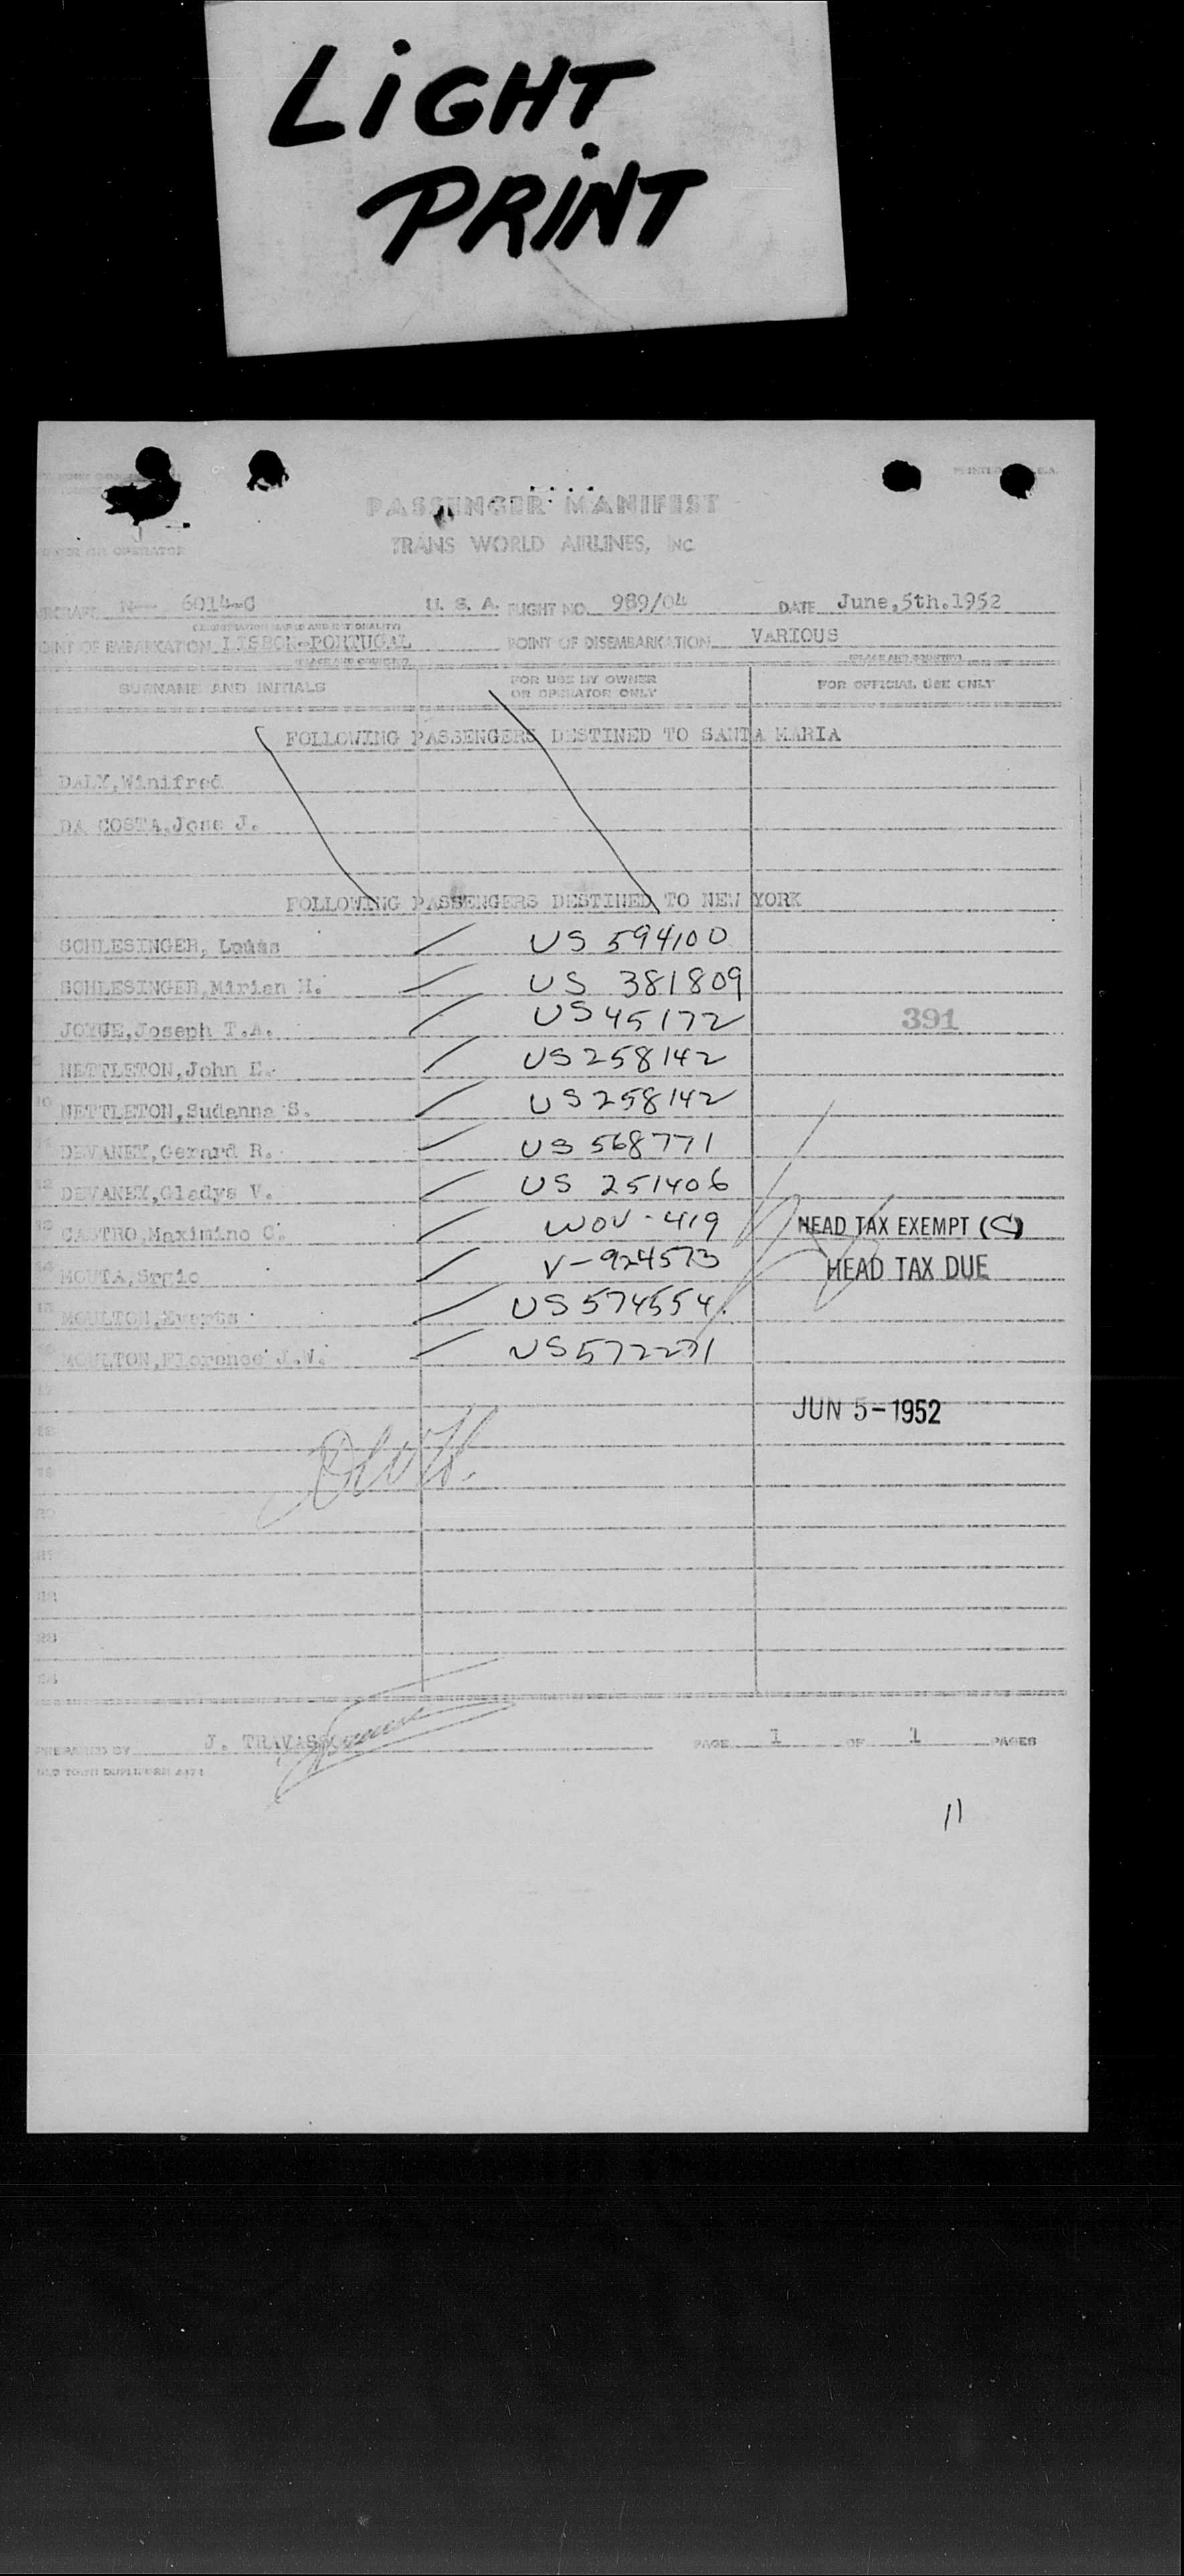 LiGHT
PRiNT
PASSENGER MANIFEST
TRANS WORLD AIRLINES, INC.
OWNER OR OPERATOR
AIRCRAFT N— 6014-C U. S. A. FLIGHT NO. 989/04 DATE June,5th.1952
POINT OF EMBARKATION LISBON-PORTUGAL POINT OF DISEMBARKATION VARIOUS
SURNAME AND INITIALS FOR USE BY OWNER OR OPERATOR ONLY FOR OFFICIAL USE ONLY
FOLLOWING PASSENGERS DESTINED TO SANTA MARIA
DALY,Winifred
DA COSTA,Jose J.
FOLLOWING PASSENGERS DESTINED TO NEW YORK
SCHLESINGER, US 594100
SCHLESINGER,Mirian H. US 381809
JOYCE,Joseph T.A. US 45172 391
NETTLETON,John E. US 258142
10 NETTLETON,Sudanna S. US 258142
11 DEVANEY,Gerard R. US 568771
12 DEVANEY,Gladys V. US 251406
13 CASTRO,Maximino C. WOV-419 HEAD TAX EXEMPT (C)
14 MOUTA,Srgio V-924573 HEAD TAX DUE
15 MOULTON,Evarts US 574554
16 MOULTON,Florence J.W. US 572271
17
JUN 5-1952
18
19
20
21
22
23
24
PREPARED BY J. PAGE 1 OF 1 PAGES
11